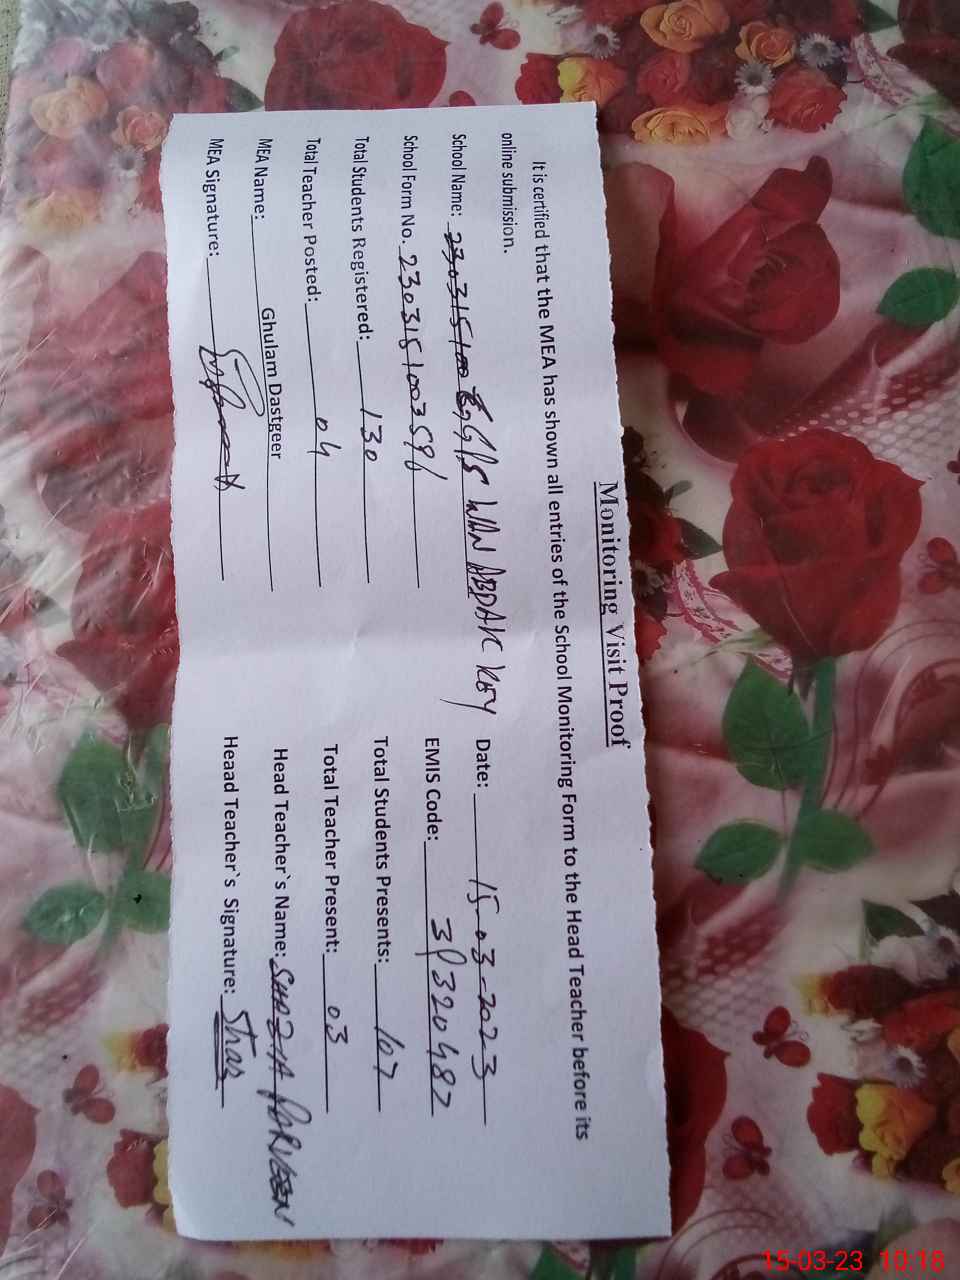 Monitoring Visit Proof
It is certified that the MEA has shown all entries of the School Monitoring Form to the Head Teacher before its
online submission.
School Name: GGPS WAN ABDAK KEY Date: 15-03-2023
School Form No. 2303151003596 EMIS Code: 31320482
Total Students Registered: 130 Total Students Presents: 107
Total Teacher Posted: 04 Total Teacher Present: 03
MEA Name: Ghulam Dastgeer Head Teacher`s Name: SHAZIA PARVEEN
MEA Signature: Head Teacher`s Signature: Shaz
15-03-23 10:18